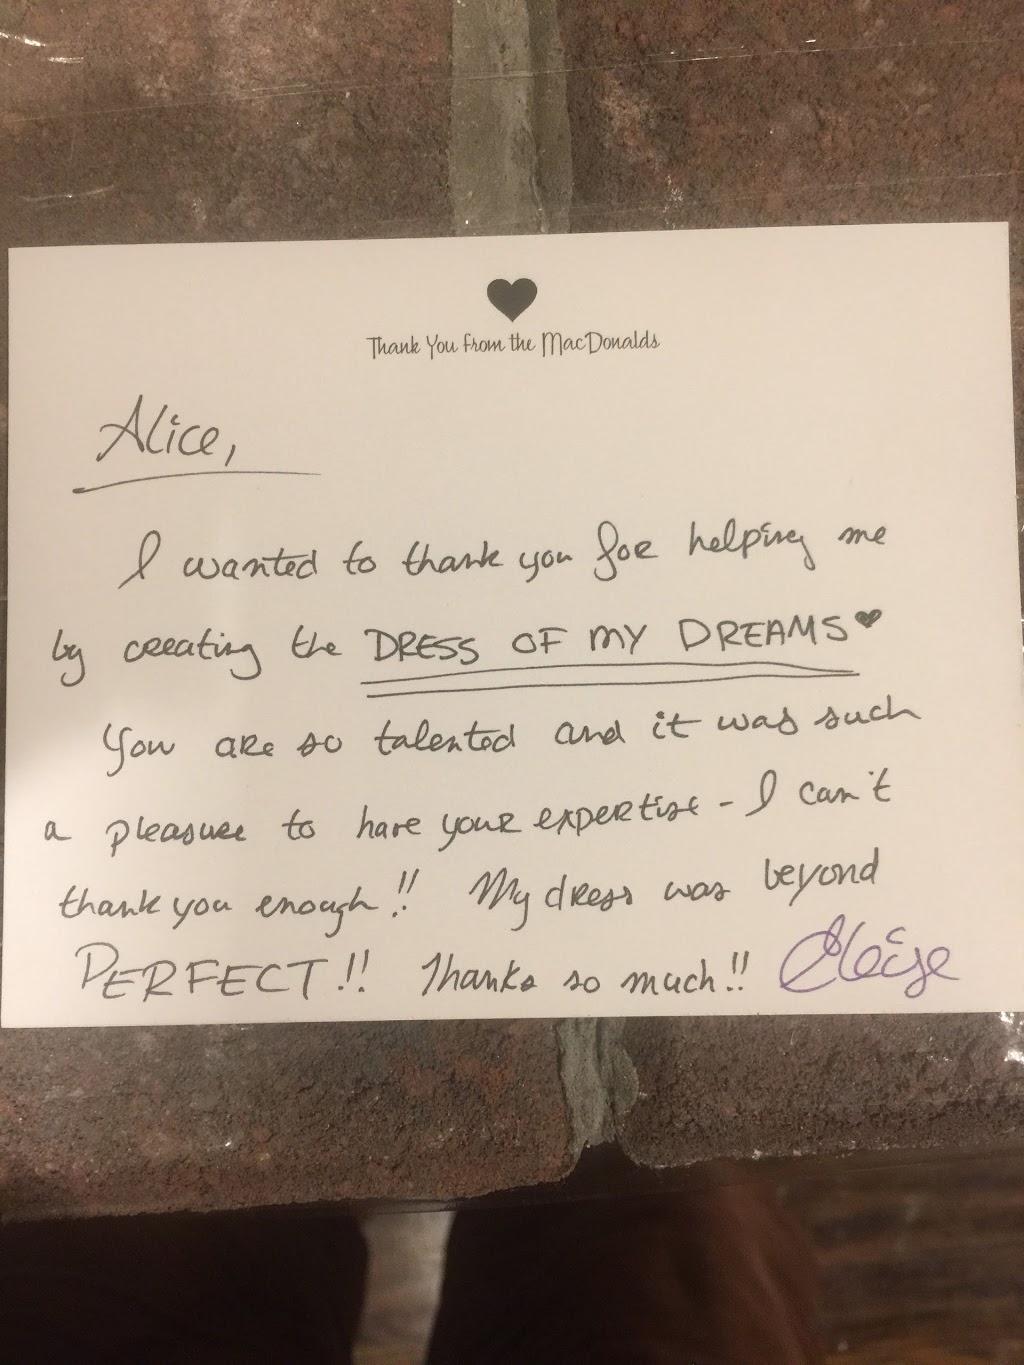 Thank You from the MacDonalds
Alice,
I wanted to thank you for helping me
by creating the DRESS OF MY DREAMS♥
You are so talented and it was such
a pleasure to have your expertise - I can't
thank you enough!! My dress was beyond
PERFECT!! Thanks so much!! Eloise